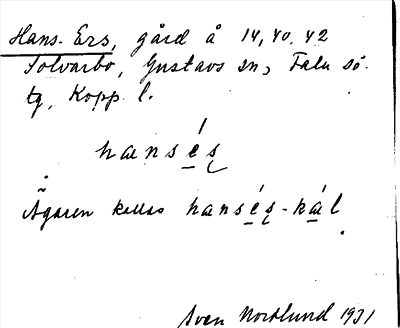 Hans-Ers, gård å 14, 40, 42
Solvarbo, Gustavs sn, Falu sö.
tg, Kopp. l.
hansés̨
Ägaren kallas hansés̨-kál
Sven Nordlund 1931